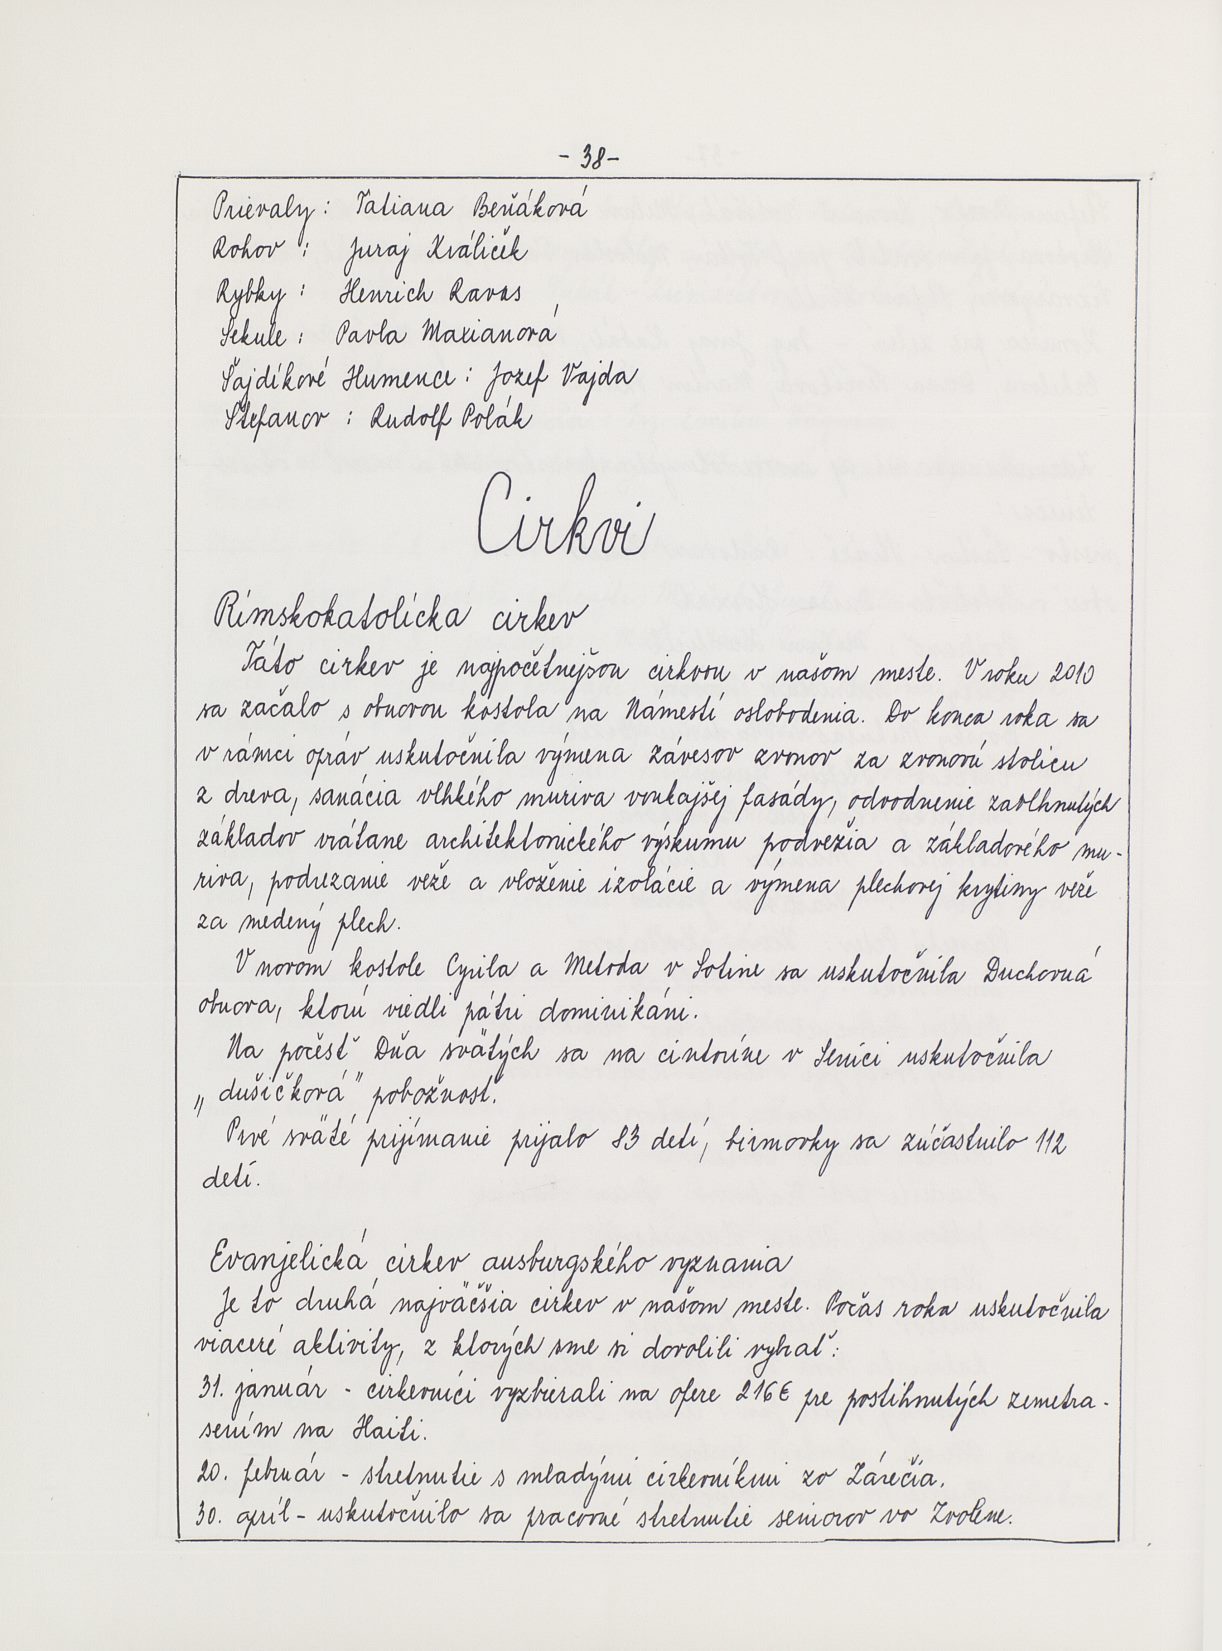 - 38 -
Prievaly : Tatiana Beňáková
Rohov : Juraj Králiček
Rybky : Henrich Ravas
Sekule : Pavla Maxianová
Šajdíkové Humence : Jozef Vajda
Štefanov : Rudolf Polák
Cirkvi
Rímskokatolícka cirkev
Táto cirkev je najpočetnejšou cirkvou v našom meste. V roku 2010
sa začalo s obnovou kostola na Námestí oslobodenia. Do konca roka sa
v rámci opráv uskutočnila výmena závesov zvonov za zvonovú stolicu
z dreva, sanácia vlhkého muriva vonkajšej fasády, odvodnenie zavlhnutých
základov vrátane architektonického výskumu podvežia a základového mu-
riva, podrezanie veže a vloženie izolácie a výmena plechovej krytiny veže
za medený plech.
V novom kostole Cyrila a Metoda v Sotine sa uskutočnila Duchovná
obnova, ktorú viedli pátri dominikáni.
Na počesť Dňa svätých sa na cintoríne v Senici uskutočnila
„dušičková" pobožnosť.
Prvé sväté prijímanie prijalo 83 detí, birmovky sa zúčastnilo 112
detí.
Evanjelická cirkev ausburgského vyznania
Je to druhá najväčšia cirkev v našom meste. Počas roka uskutočnila
viaceré aktivity, z ktorých sme si dovolili vybrať:
31. január - cirkevníci vyzbierali na ofere 216€ pre postihnutých zemetra-
sením na Haiti.
20. február - stretnutie s mladými cirkevníkmi zo Zárečia.
30. apríl - uskutočnilo sa pracovné stretnutie seniorov vo Zvolene.